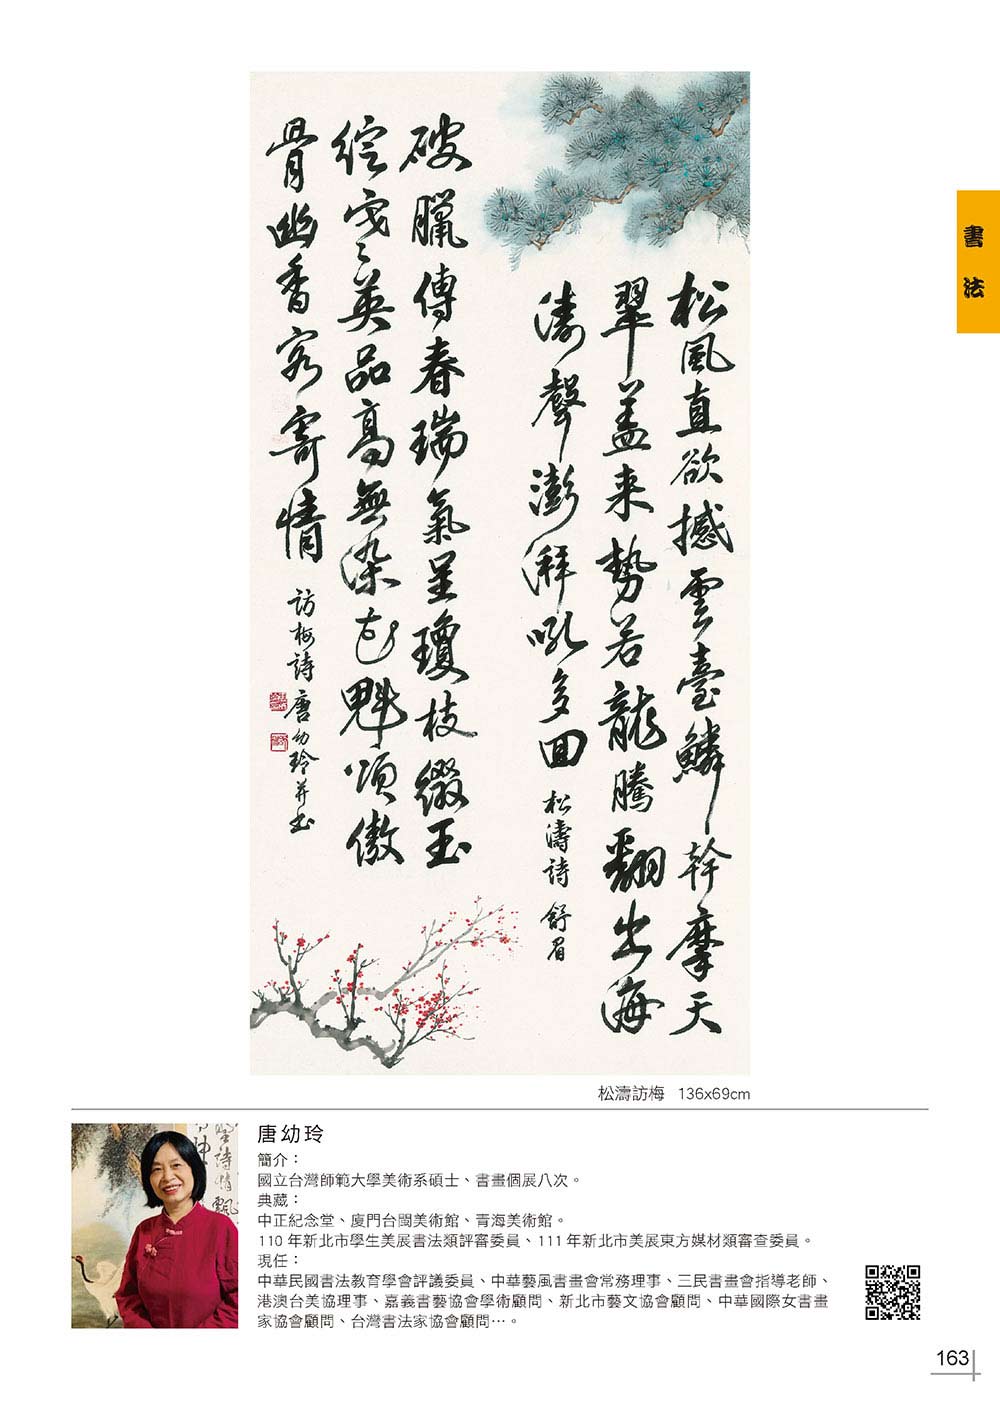 書法
松風直欲撼雲臺鱗幹摩天
翠蓋来勢若龍騰翻出海
濤聲澎湃吼多回 松濤詩 舒眉
破臘傳春瑞氣呈瓊枝綴玉
綻寒英品高無染花魁頌傲
骨幽香客寄情 訪梅詩 唐幼玲并書
松濤訪梅 136x69cm
唐幼玲
簡介：
國立台灣師範大學美術系碩士、書畫個展八次。
典藏：
中正紀念堂、廈門台閩美術館、青海美術館。
110 年新北市學生美展書法類評審委員、111 年新北市美展東方媒材類審查委員。
現任：
中華民國書法教育學會評議委員、中華藝風書畫會常務理事、三民書畫會指導老師、
港澳台美協理事、嘉義書藝協會學術顧問、新北市藝文協會顧問、中華國際女書畫
家協會顧問、台灣書法家協會顧問⋯。
163